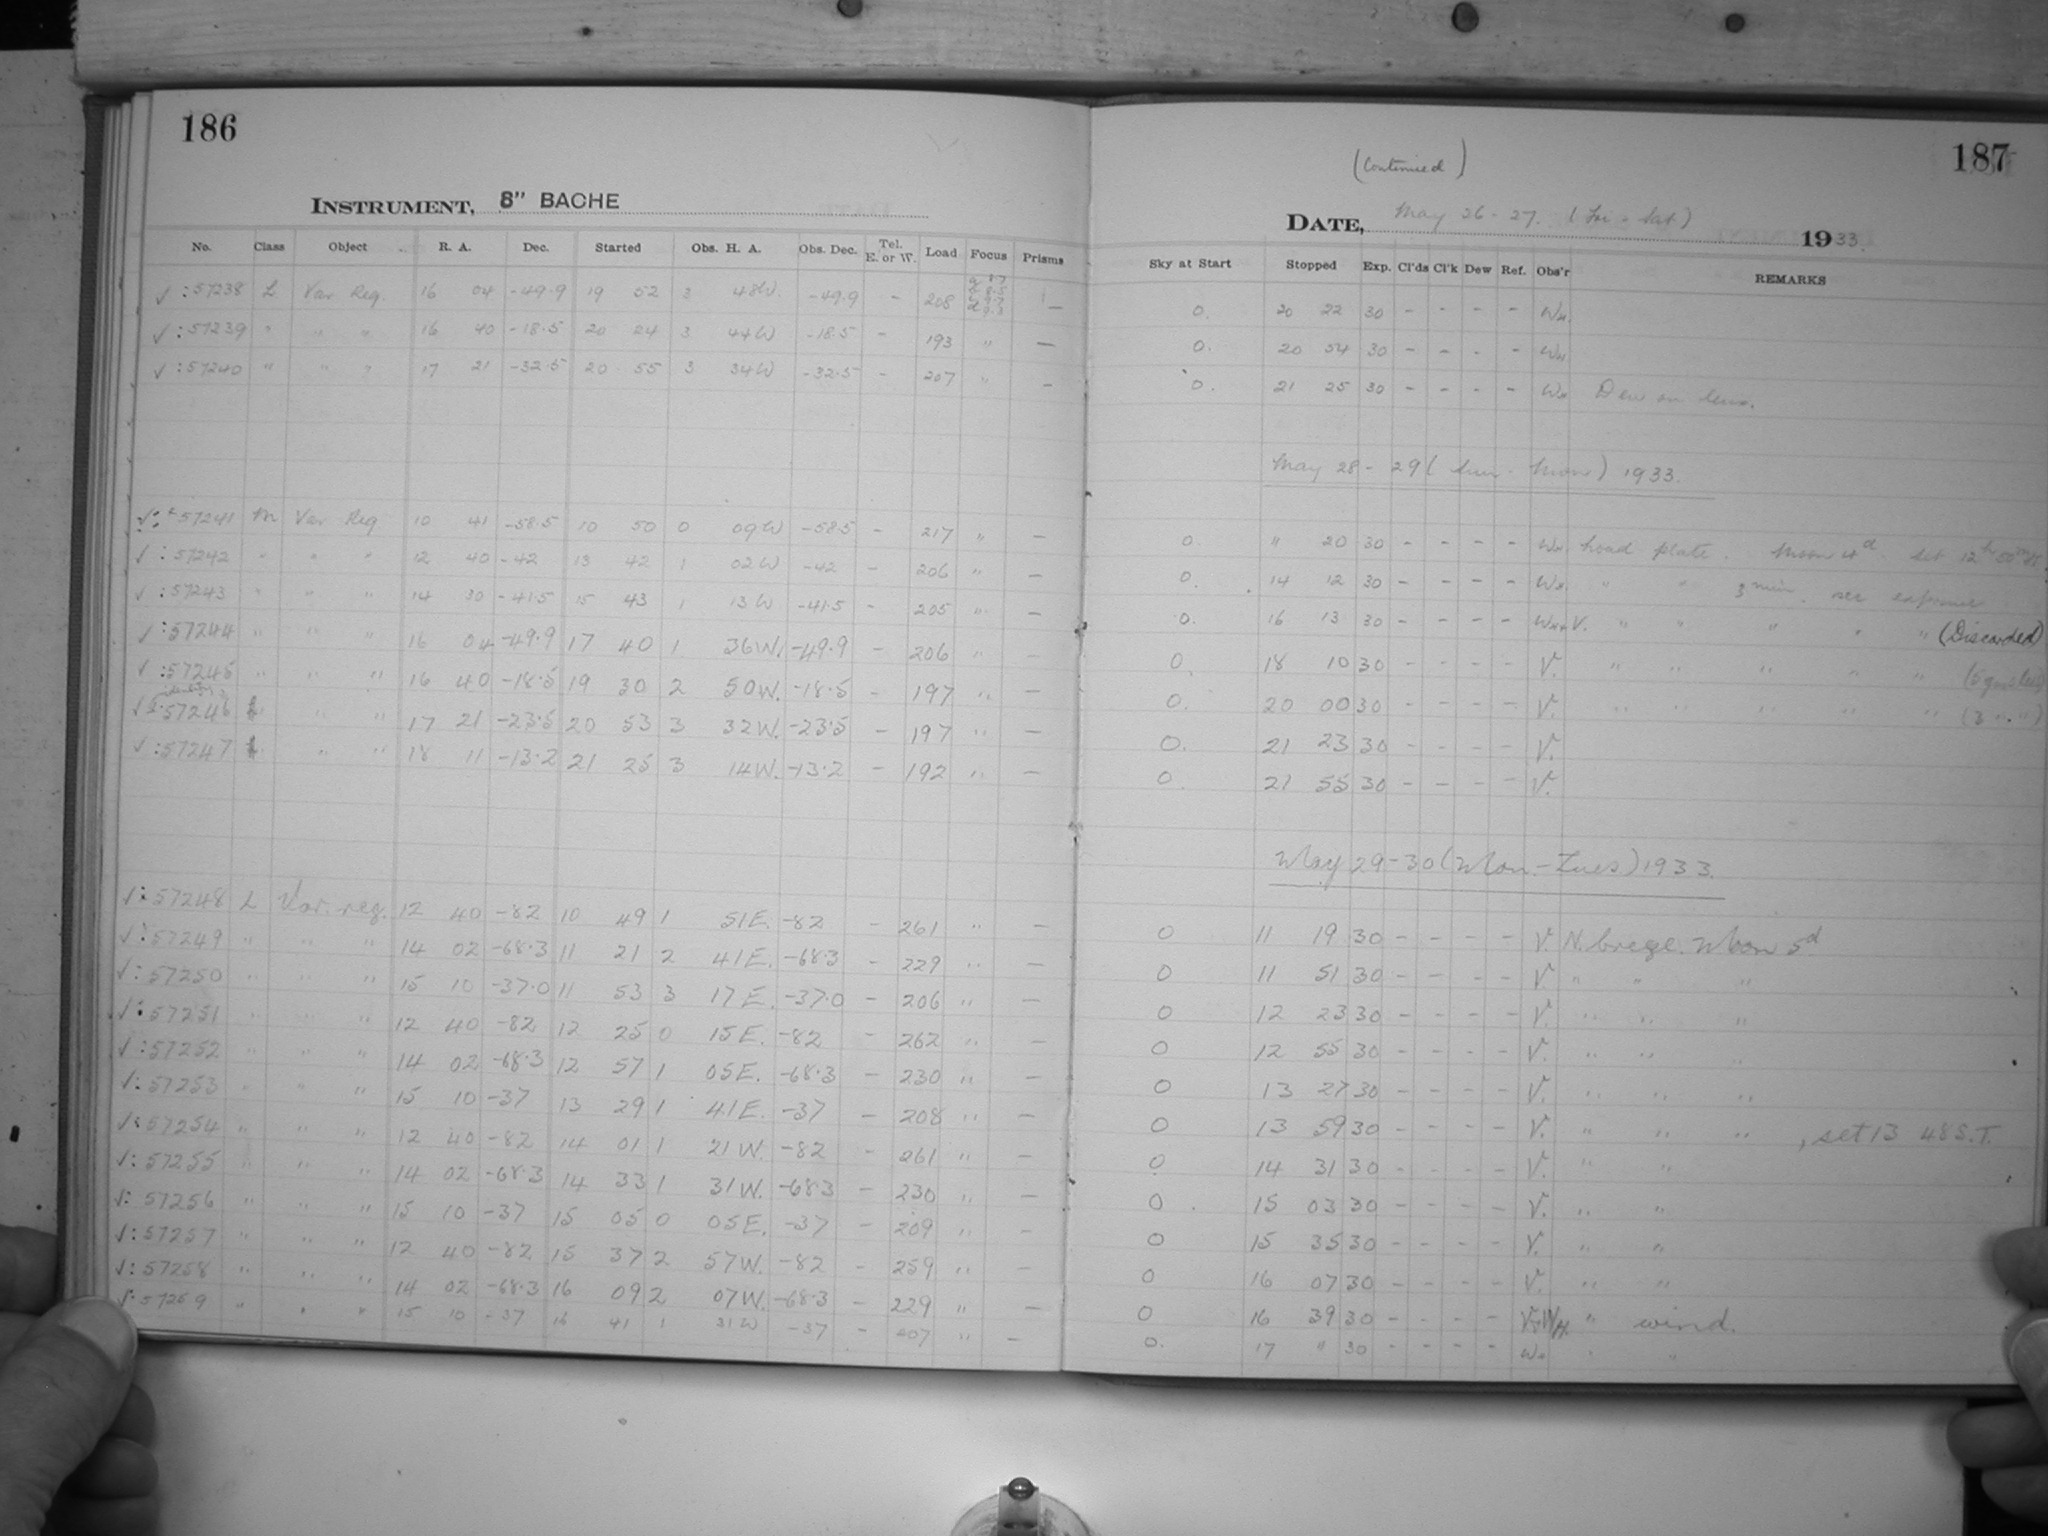 186
INSTRUMENT, 8" BACHE
No. Class Object R. A. Dec. Started Obs. H. A. Obs. Dec. Tel. E. or W. Load Focus Prisms
√ : 57238 L Var Reg. 16 04 -49.9 19 52 3 48W. -49.9 - 208 —
√ : 57239 " " " 16 40 -18.5 20 24 3 44W -18.5 - 193 " —
√ : 57240 " " " 17 21 -32.5 20 55 3 34W -32.5 - 207 " —
57241 m Var Reg 10 41 -58.5 10 50 0 09W -58.5 - 217 " —
√ : 57242 " " " 12 40 -42 13 42 1 02W -42 - 206 " —
√ : 57243 " " " 14 30 -41.5 15 43 1 13W -41.5 - 205 " —
√ : 57244 " " " 16 04 -49.9 17 40 1 36W. -49.9 - 206 " —
√ : 57245 " " " 16 40 -18.5 19 30 2 50W. -18.5 - 197 " —
57246 " " 17 21 -23.5 20 53 3 32W. -23.5 - 197 " —
√ : 57247 " " 18 11 -13.2 21 25 3 14W. -13.2 - 192 " —
√ : 57248 L Var. reg. 12 40 -82 10 49 1 51E. -82 - 261 " —
√ : 57249 " " " 14 02 -68.3 11 21 2 41E. -68.3 - 229 " —
√ : 57250 " " " 15 10 -37.0 11 53 3 17E. -37.0 - 206 " —
√ : 57251 " " " 12 40 -82 12 25 0 15E. -82 - 262 " —
√ : 57252 " " " 14 02 -68.3 12 57 1 05E. -68.3 - 230 " —
√ : 57253 " " " 15 10 -37 13 29 1 41E. -37 - 208 " —
√ : 57254 " " " 12 40 -82 14 01 1 21W. -82 - 261 " —
√ : 57255 " " " 14 02 -68.3 14 33 1 31W. -68.3 - 230 " —
√ : 57256 " " " 15 10 -37 15 05 0 05E. -37 - 209 " —
√ : 57257 " " " 12 40 -82 15 37 2 57W. -82 - 259 " —
√ : 57258 " " " 14 02 -68.3 16 09 2 07W. -68.3 - 229 " —
√ : 57259 " " " 15 10 -37 16 41 1 31W -37 - 207 " —
187
(Continued)
DATE, May 26-27. (Fri - Sat) 1933.
Sky at Start Stopped Exp. Cl'ds Cl'k Dew Ref. Obs'r REMARKS
0. 20 22 30 - - - - WH.
0. 20 54 30 - - - - WH
0. 21 25 30 - - - - WH Dew on lens.
May 28-29 (Sun - Mon) 1933.
0. " 20 30 - - - - WH plate. Moon 4d. Set 12h 50m
0. 14 12 30 - - - - WH. " " 3 min. sec exposure
0. 16 13 30 - - - - WH+V. " " " " " (Discarded)
0. 18 10 30 - - - - V. " " " " "
0. 20 00 30 - - - - V. " " " " " (3 " ")
0. 21 23 30 - - - - V.
0. 21 55 30 - - - - V.
May 29-30 (Mon.-Tues) 1933.
0 11 19 30 - - - - V. N. breeze. Moon 5d
0 11 51 30 - - - - V " " "
0 12 23 30 - - - - V. " " "
0 12 55 30 - - - - V. " " "
0 13 27 30 - - - - V. " " "
0 13 59 30 - - - - V. " " " , set 13 48 S.T.
0 14 31 30 - - - - V. " "
0 15 03 30 - - - - V. " "
0 15 35 30 - - - - V. " "
0 16 07 30 - - - - V. " "
0 16 39 30 - - - - V+WH. " wind.
0. 17 " 30 - - - - WH " "